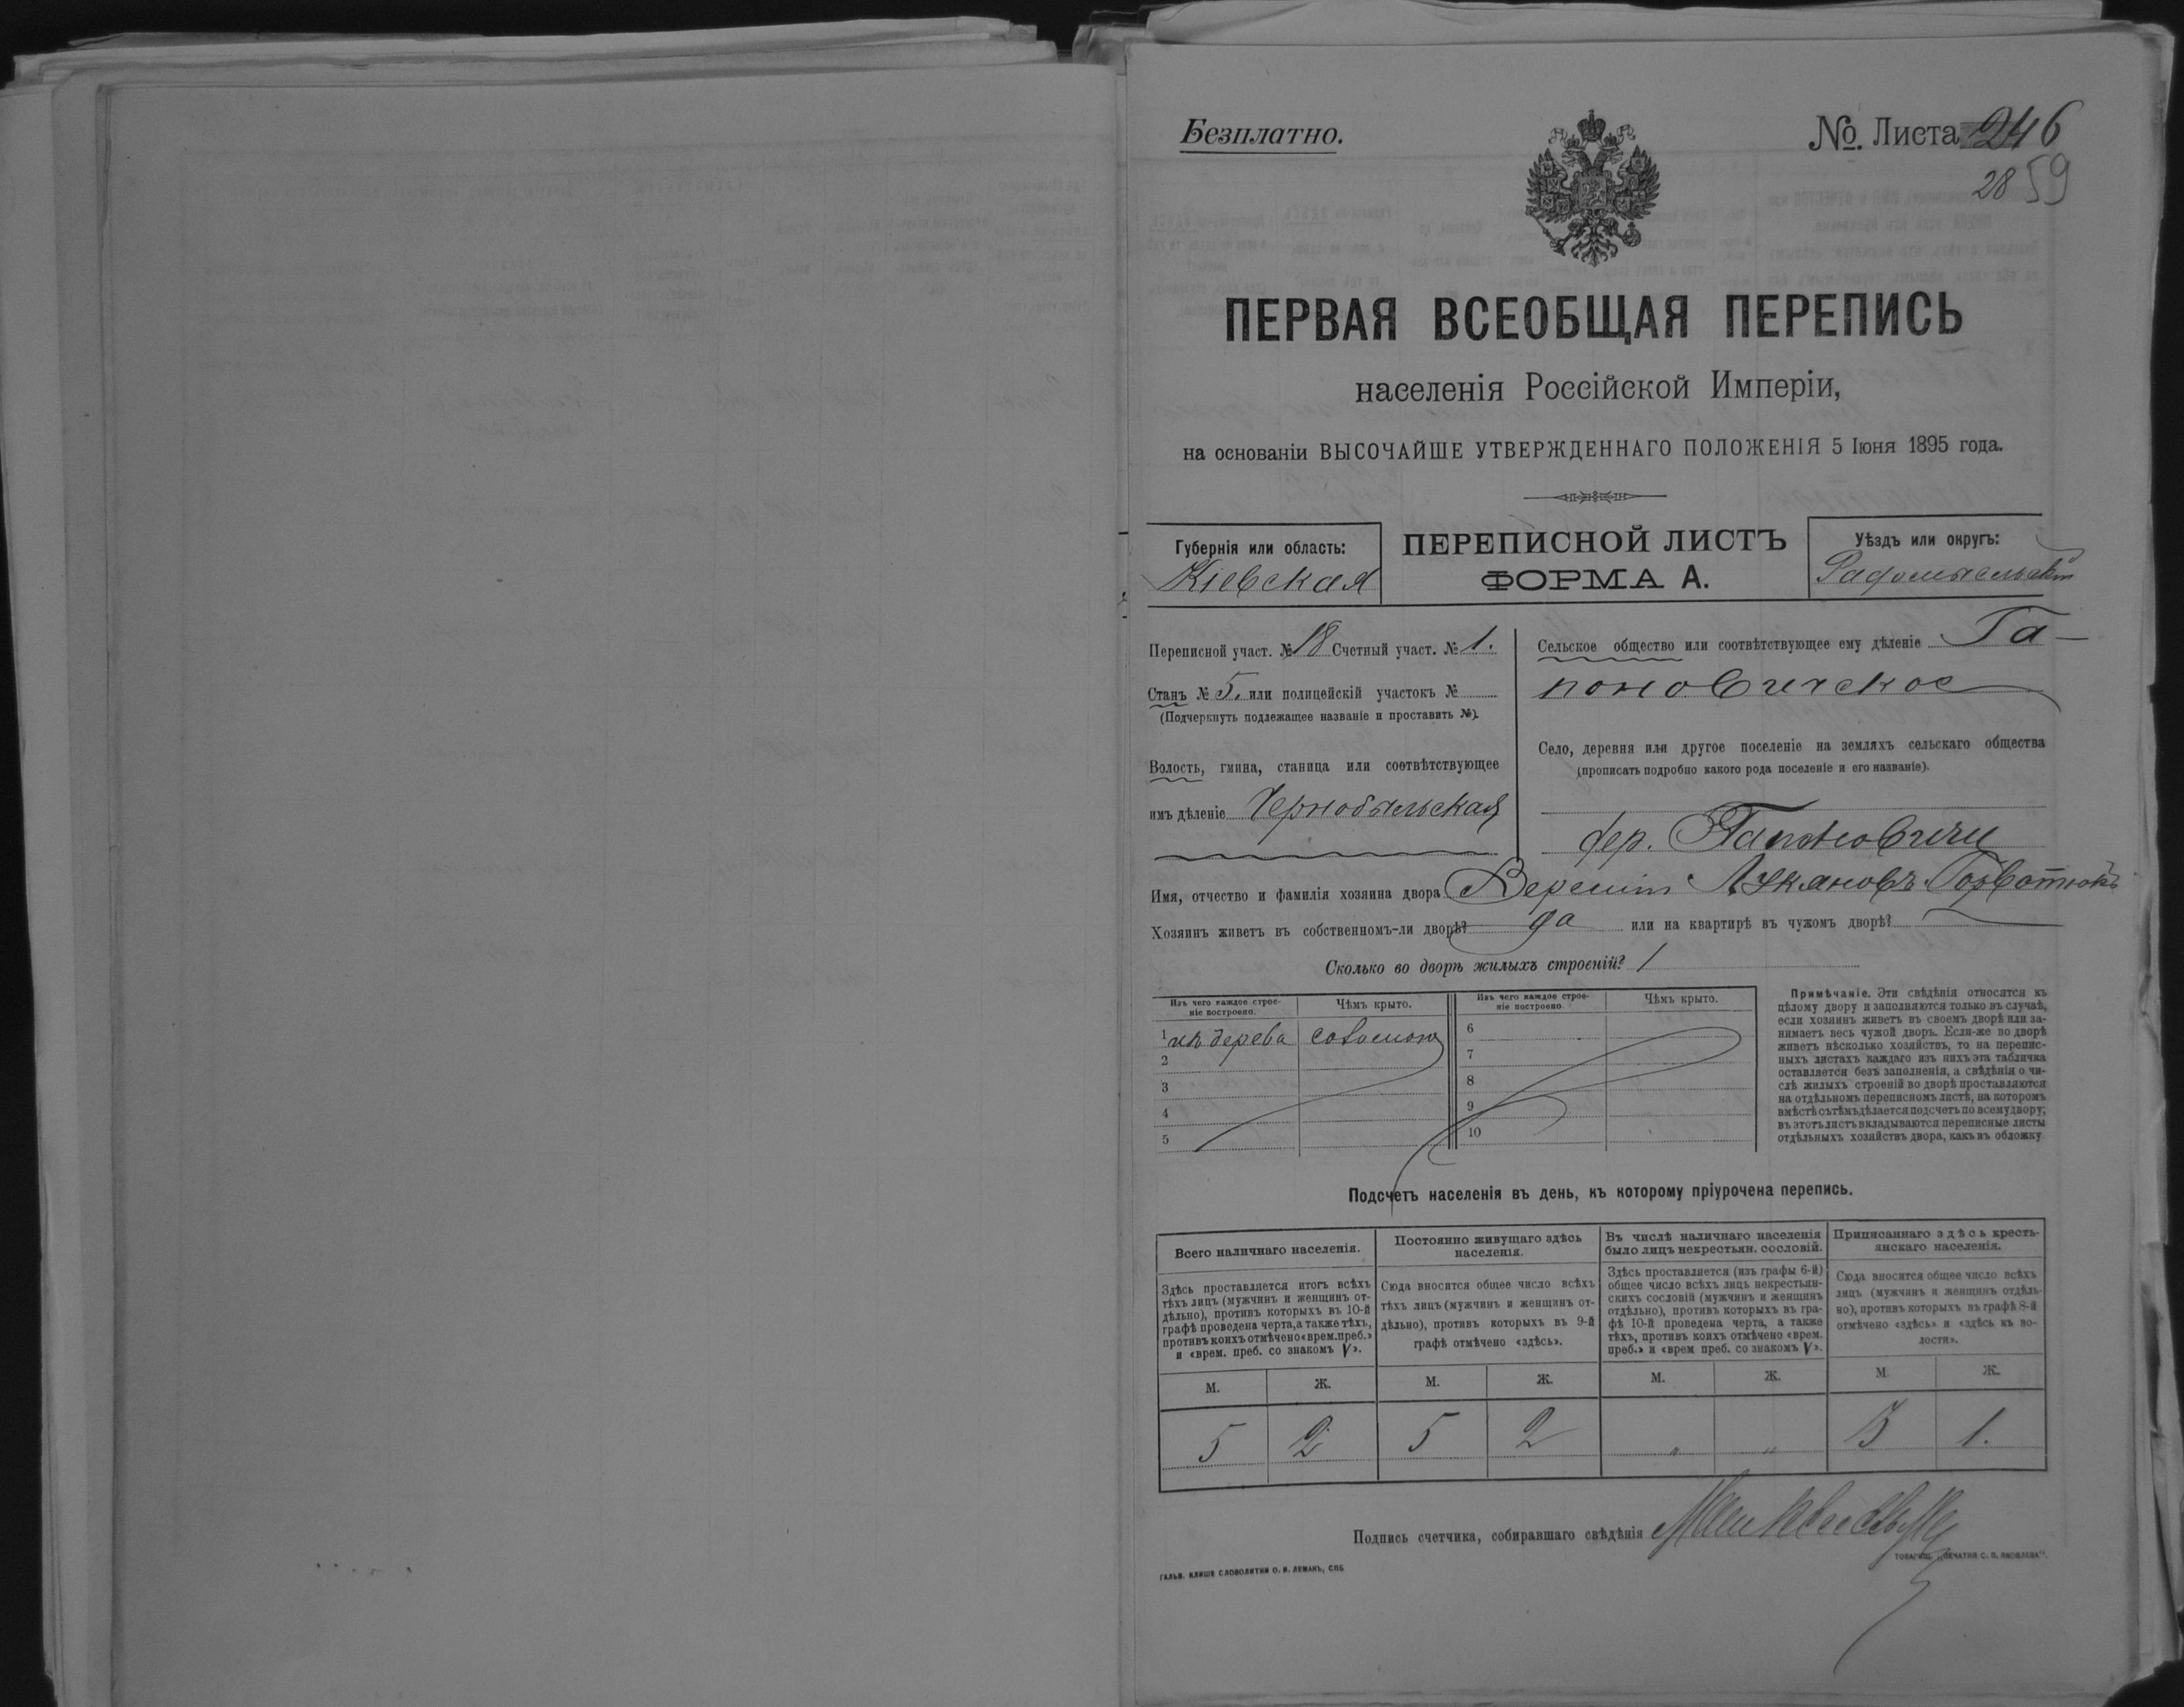 Безплатно.
№. Листа 246
28 59
ПЕРВАЯ ВСЕОБЩАЯ ПЕРЕПИСЬ
населенія Россійской Имперіи,
на основаніи ВЫСОЧАЙШЕ УТВЕРЖДЕННАГО ПОЛОЖЕНІЯ 5 Іюня 1895 года.
Губернія или область:
Кіевская
ПЕРЕПИСНОЙ ЛИСТЪ
ФОРМА А.
Уѣздъ или округъ:
Радомысльскій
Переписной участ. № 18 Счетный участ. № 1.
Станъ № 5. или полицейскій участокъ №
(Подчеркнуть подлежащее названіе и проставить №).
Волость, гмина, станица или соотвѣтствующее
имъ дѣленіе Чернобыльская
Сельское общество или соотвѣтствующее ему дѣленіе Га-
поновичское
Село, деревня или другое поселеніе на земляхъ сельскаго общества
(прописать подробно какого рода поселеніе и его названіе).
дер. Гапоновичи
Имя, отчество и фамилія хозяина двора Лукяновъ
Хозяинъ живетъ въ собственномъ-ли дворѣ? да или на квартирѣ въ чужомъ дворѣ?
Сколько во дворѣ жилыхъ строеній? 1
Изъ чего каждое строе-
ніе построено.
Чѣмъ крыто.
Изъ чего каждое строе-
ніе построено
Чѣмъ крыто.
1 изъ дерева соломою
2
3
4
5
6
7
8
9
10
Примѣчаніе. Эти свѣдѣнія относятся къ
цѣлому двору и заполняются только въ случаѣ,
если хозяинъ живетъ въ своемъ дворѣ или за-
нимаетъ весь чужой дворъ. Если-же во дворѣ
живетъ нѣсколько хозяйствъ, то на перепис-
ныхъ листахъ каждаго изъ нихъ эта табличка
оставляется безъ заполненія, а свѣдѣнія о чи-
слѣ жилыхъ строеній во дворѣ проставляются
на отдѣльномъ переписномъ листѣ, на которомъ
вмѣстѣ съ тѣмъ дѣлается подсчетъ по всему двору;
въ этотъ листъ вкладываются переписные листы
отдѣльныхъ хозяйствъ двора, какъ въ обложку
Подсчетъ населенія въ день, къ которому пріурочена перепись.
Всего наличнаго населенія.
Здѣсь проставляется итогъ всѣхъ
тѣхъ лицъ (мужчинъ и женщинъ от-
дѣльно), противъ которыхъ въ 10-й
графѣ проведена черта, а также тѣхъ,
противъ коихъ отмѣчено «врем. преб.»
и «врем. преб. со знакомъ V».
Постоянно живущаго здѣсь
населенія.
Сюда вносится общее число всѣхъ
тѣхъ лицъ (мужчинъ и женщинъ от-
дѣльно), противъ которыхъ въ 9-й
графѣ отмѣчено «здѣсь».
Въ числѣ наличнаго населенія
было лицъ некрестьян. сословій.
Здѣсь проставляется (изъ графы 6-й)
общее число всѣхъ лицъ некрестьян-
скихъ сословій (мужчинъ и женщинъ
отдѣльно), противъ которыхъ въ гра-
фѣ 10-й проведена черта, а также
тѣхъ, противъ коихъ отмѣчено «врем.
преб.» и «врем преб. со знакомъ V».
Приписаннаго здѣсь кресть-
янскаго населенія.
Сюда вносится общее число всѣхъ
лицъ (мужчинъ и женщинъ отдѣль-
но), противъ которыхъ въ графѣ 8-й
отмѣчено «здѣсь» и «здѣсь къ во-
лости».
М. Ж. М. Ж. М. Ж. М. Ж.
5 2 5 2 " " 5 1.
Подпись счетчика, собиравшаго свѣдѣнія
ГАЛЬВ. КЛИШЕ СЛОВОЛИТНИ О. И. ЛЕМАНЪ, СПБ
ТОВАРИЩ. „ПЕЧАТНЯ С. П. ЯКОВЛЕВА".